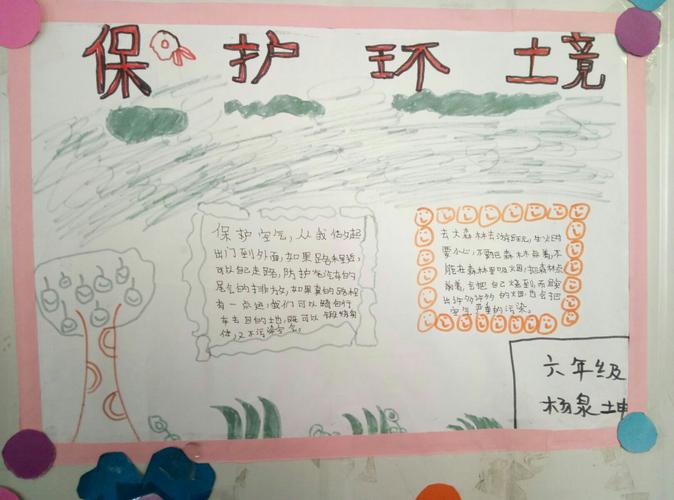 保护环境
保护空气,从我做起
出门到外面,如果路程近,
可以自己走路,防护汽车的
尾气的排放,如果真的路程
有一点远,我们可以骑自行
车去目的地,既可以锻炼身
体,又不污染空气。
去大森林去游玩,生火时
要小心,不要把森林燃着,不
能在森林里吸火因,把森林点
燃着,会把自己烧到,而放
出许多许多的烟,也会把
空气严重的污染。
六年级
杨泉坤